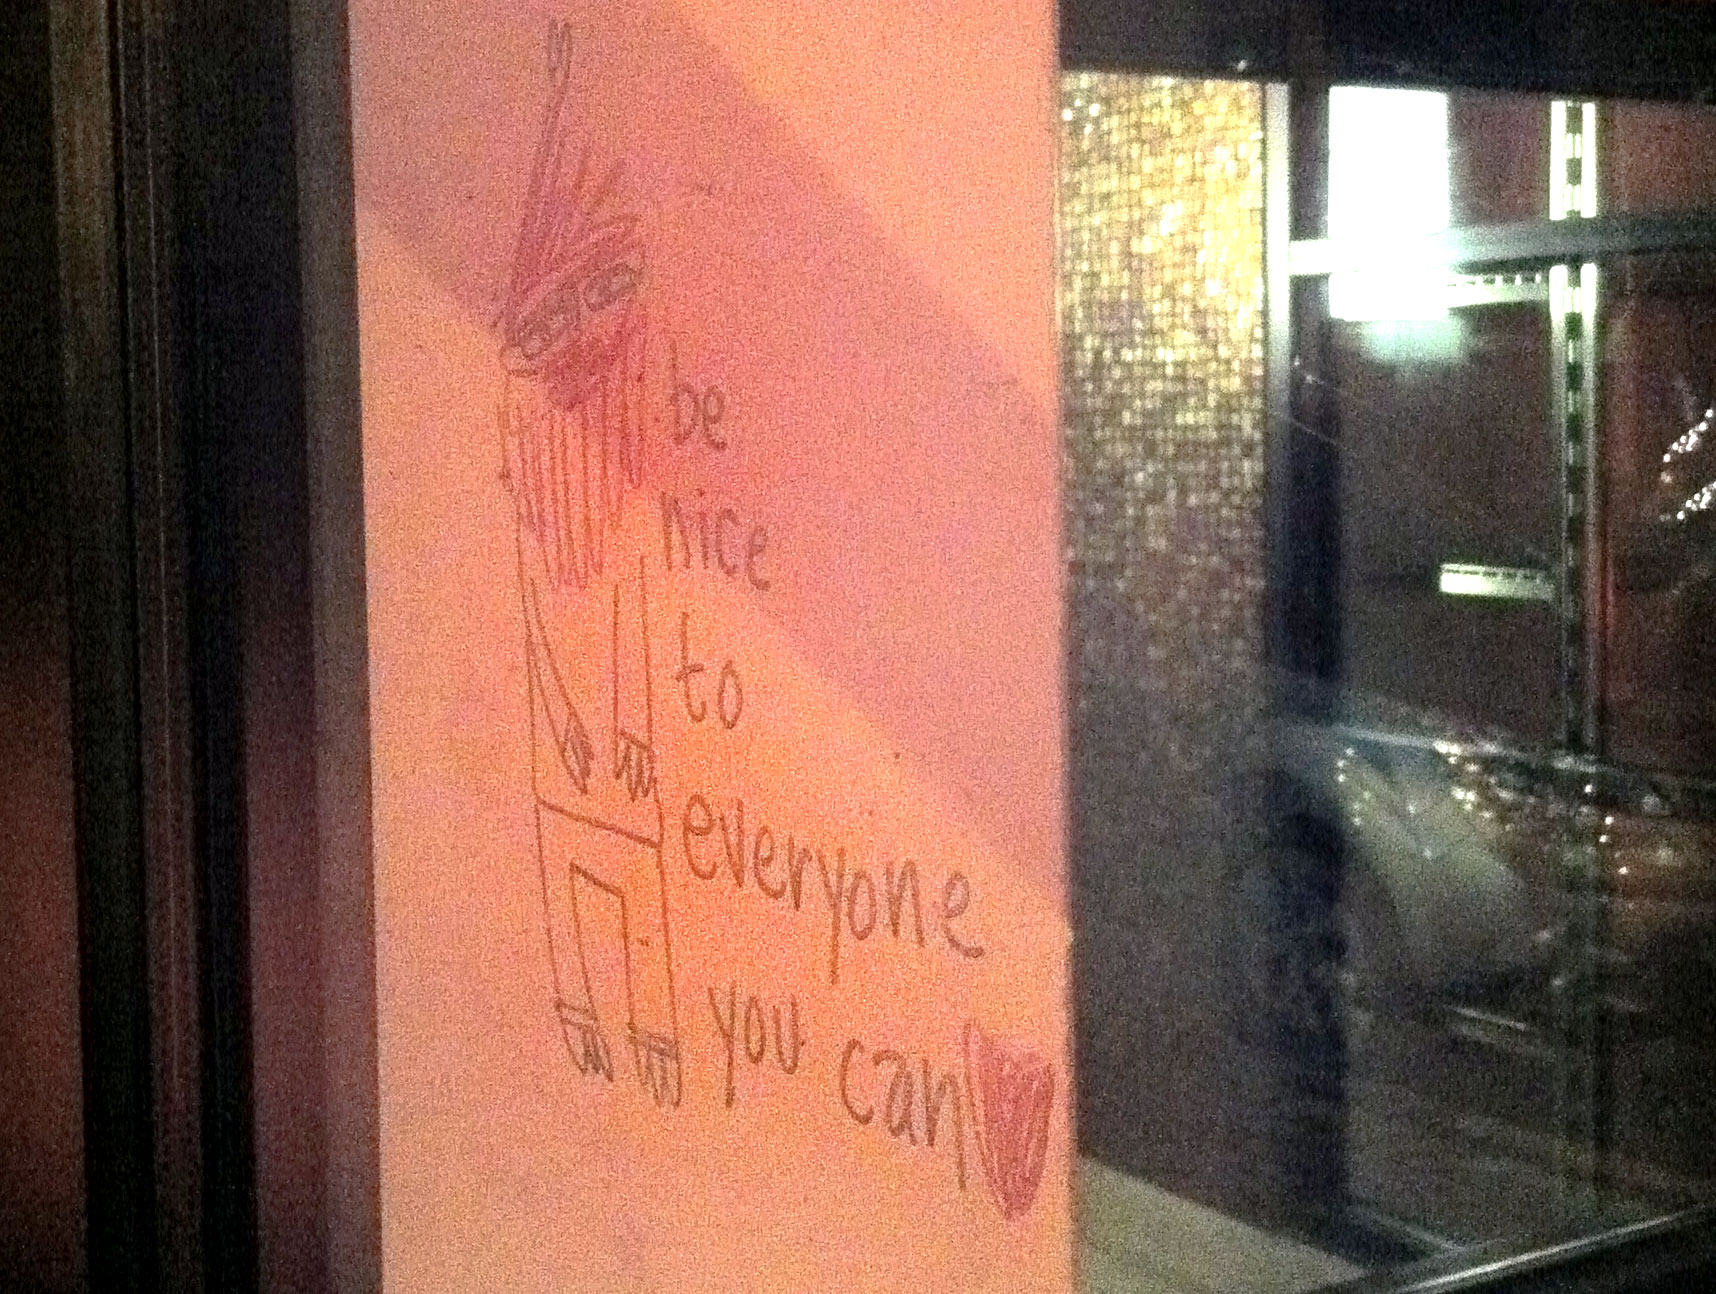 be
nice
to
everyone
you can